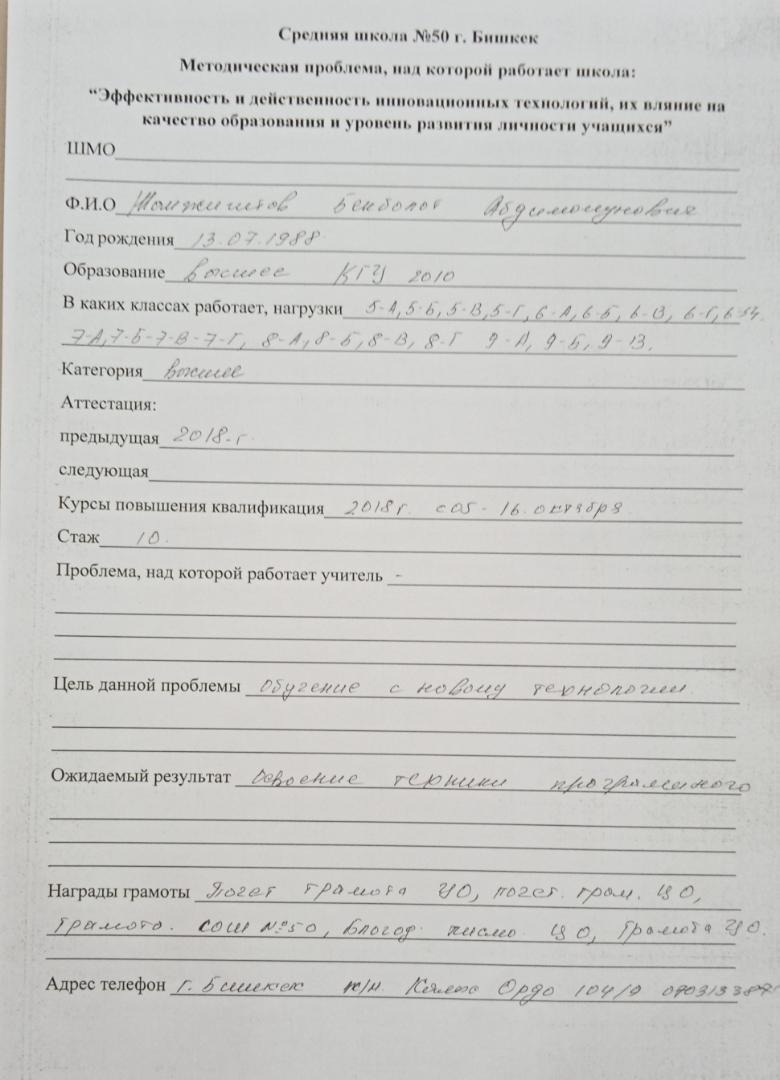 Средняя школа №50 г. Бишкек
Методическая проблема, над которой работает школа:
“Эффективность и действенность инновационных технологий, их вляние на
качество образования и уровень развития личности учащихся”
ШМО
Ф.И.О Бекболот
Год рождения 13.07.1988
Образование высшее КГУ 2010
В каких классах работает, нагрузки 5-А, 5-Б, 5-В, 5-Г, 6-А, 6-Б, 6-В, 6-Г,
7-А, 7-Б-7-В-7-Г, 8-А, 8-Б, 8-В, 8-Г 9-А, 9-Б, 9-В.
Категория высшее
Аттестация:
предыдущая 2018-г.
следующая
Курсы повышения квалификация 2018г. с 05-16. октября
Стаж 10.
Проблема, над которой работает учитель -
Цель данной проблемы Обучение с новому технологии.
Ожидаемый результат Освоение техники программного
Награды грамоты Почет грамота ЦО, почет. грам. ЦО,
Грамота. СОШ №50, Благод. писмо ЦО, Грамота ЦО.
Адрес телефон г. Бишкек ж/м. Ордо 104/9